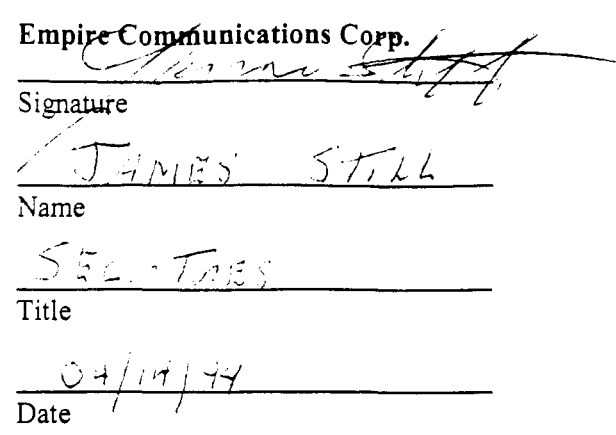 Empire Communications Corp.
Signature
JAMES STILL
Name
SEC.-TRES
Title
Date